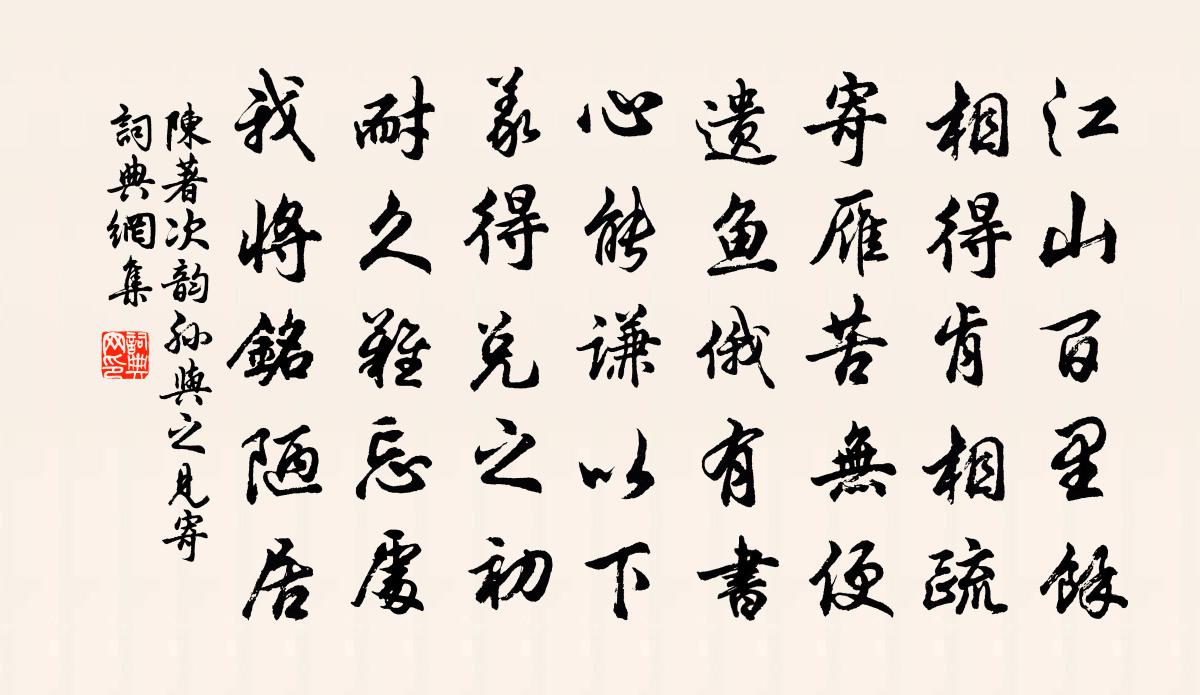 江山百里餘
相得肯相疏
寄雁苦無便
遺魚俄有書
心能謙以下
義得兌之初
耐久難忘處
我將銘陋居
陳著次韵孙與之見寄
詞典網集
詞典